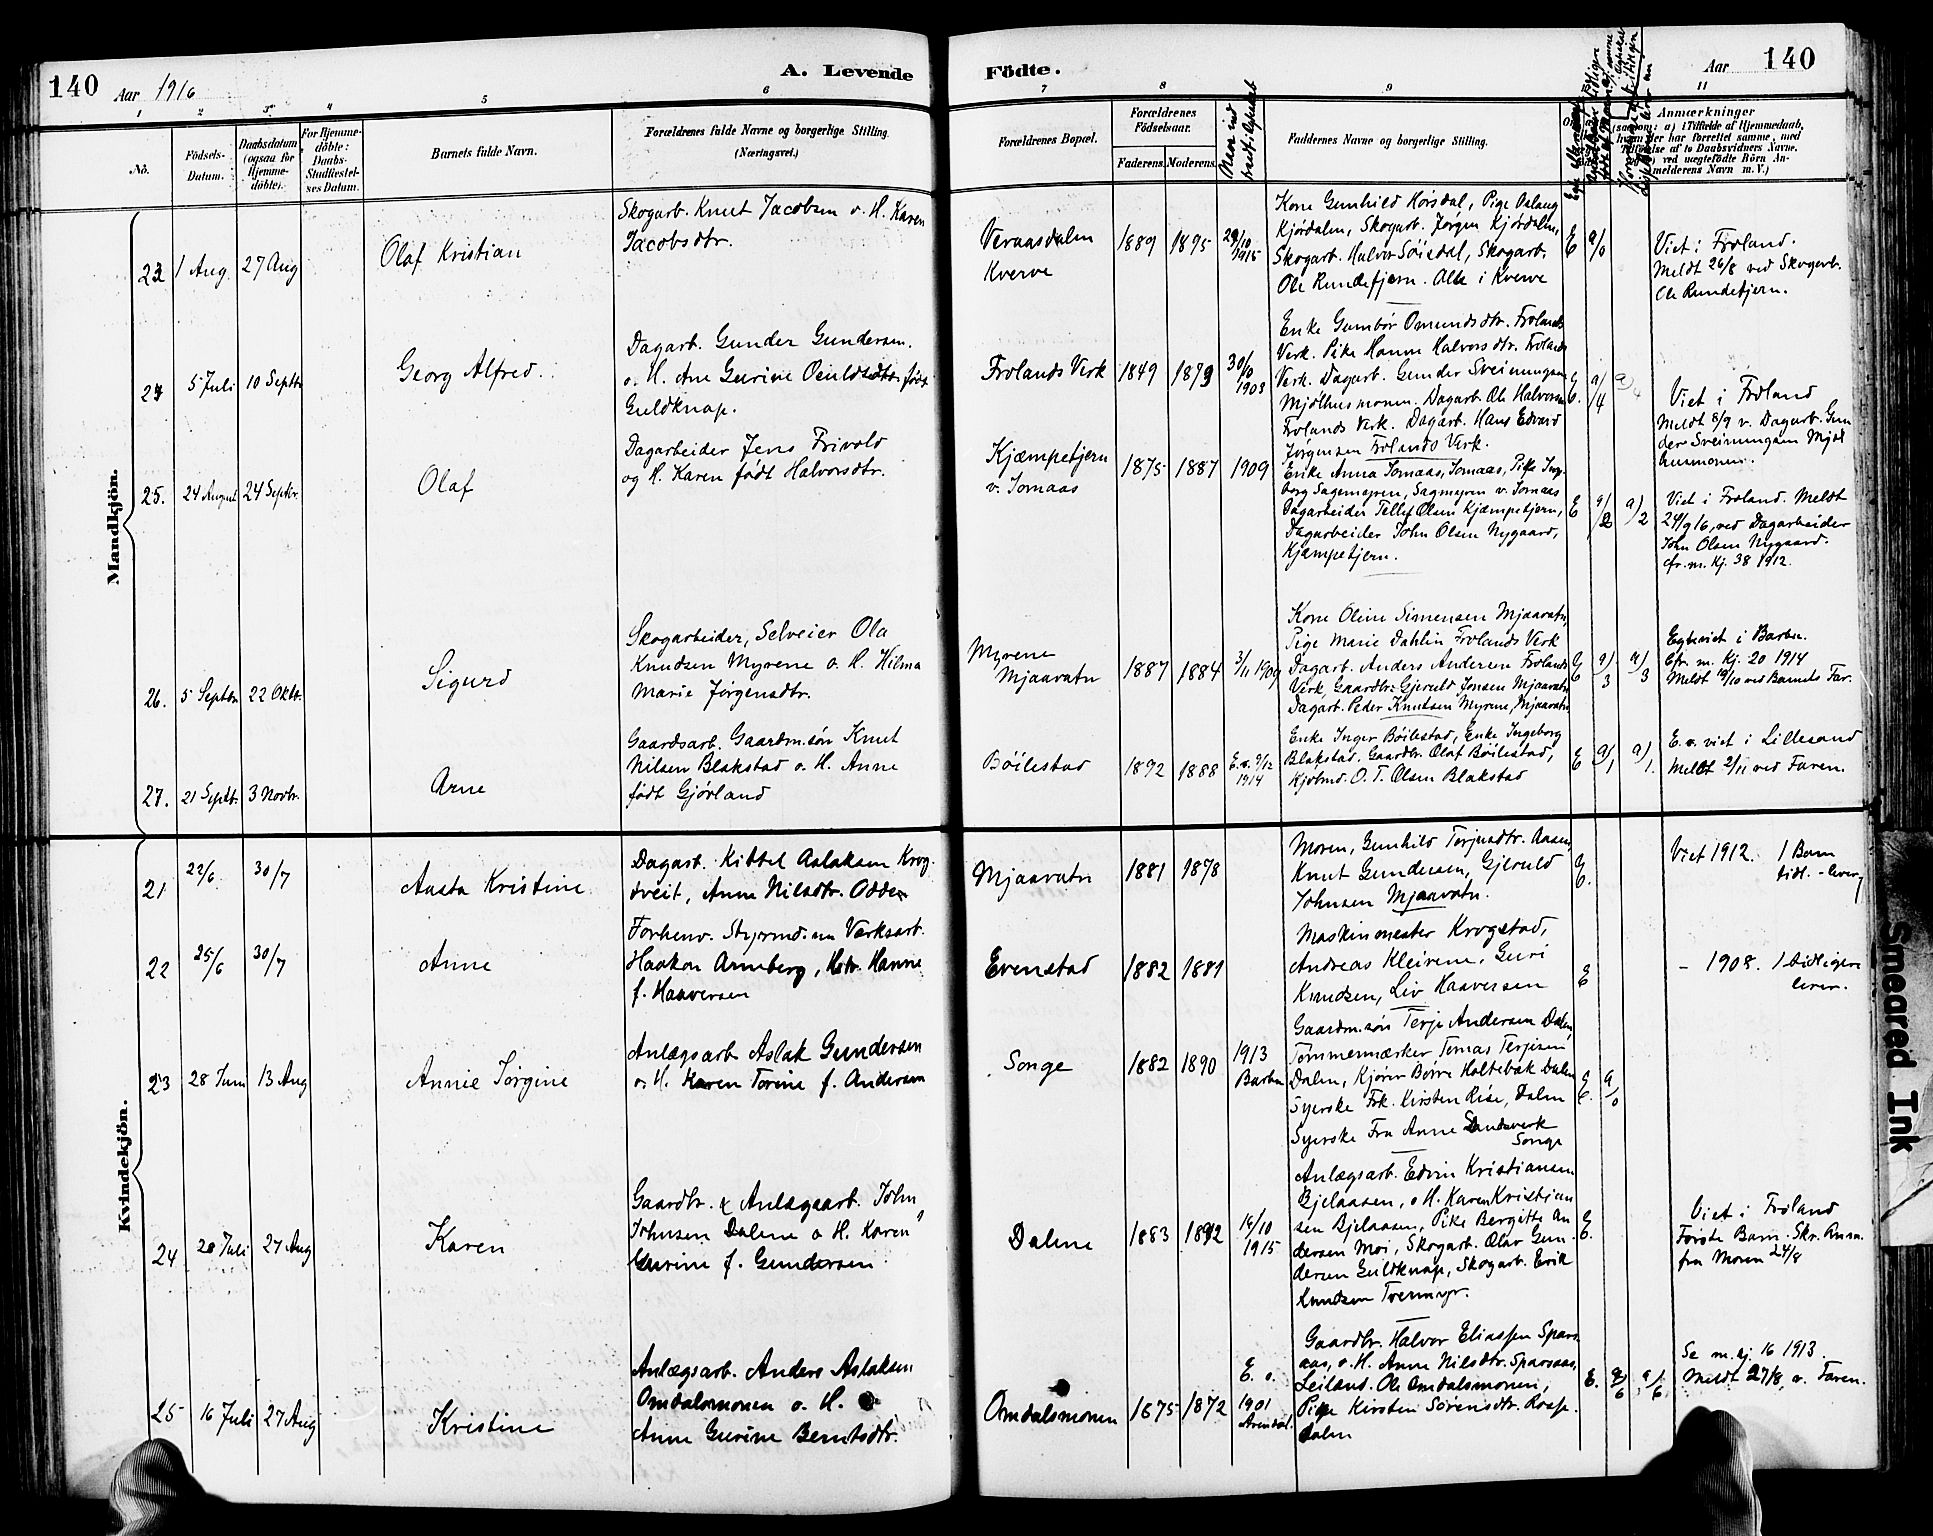 140
Aar 1916
A. Levende
Födte.
Aar
140
1
2
3
4
5
6
7
8
9
11
No.
Födsels-
Datum.
Daabsdatum
(ogsaa for
Hjemme-
döbte).
For Hjemme-
döbte:
Daabs-
Stadfæstel-
ses Datum.
Barnets fulde Navn.
Forældrenes fulde Navne og borgerlige Stilling.
(Næringsvei.)
Forældrenes Bopæl.
Forældrenes
Födselsaar.
Faderens.
Moderens.
Faddernes Navne og borgerlige Stilling.
Anmærkninger
(saasom: a) i Tilfælde af Hjemmedaab,
melderens Navn m. V.)
Mandkjön.
23
1 Aug.
27 Aug
Olaf Kristian
Skogarb. Knut Jacobsen o. H. Karen
Jacobsdtr.
Veraasdalen
Kverve
1889
1895
29/10
1915
Kone Gunhild Horsdal, Pige Aslaug
Kjórdalen, Skogarb. Jørgen Kjórdalen,
Skogarb. Halvor Sóisdal, Skogarb.
Ole Rundetjern. Alle i Kverve
E
a/0
Viet i Froland.
Meldt 26/8 ved Skogarb.
Ole Rundetjern.
24
5 Juli
10 Septbr
Georg Alfred.
Dagarb. Gunder Gundersen.
o. H. Ane Gurine født
Guldknap.
Frolands Verk
1849
1873
30/10
1903
Enke Gumbór Omundsdtr. Frolands
Verk. Pike Hanne Halvorsdtr. Frolands
Verk. Dagarb. Gunder Sveinungsen
Mjólhusmonen. Dagarb. Ole Halvorsen
Frolands Verk. Dagarb. Hans Edvard
Jørgensen Frolands Verk.
E.
a/4
Viet i Froland
Meldt 8/9 v. Dagarb. Gun
der Sveinungsen Mjól
husmonen.
25.
24 August
24 Septbr.
Olaf
Dagarbeider Jens Frivold
og H. Karen født Halvorsdtr.
Kjæmpetjern
v. Jomaas
1875
1887
1909
Enke Anna Jomaas, Jomaas, Pike Inge
borg Sagemyren, Sagmyren v. Jomaas
Dagarbeider Tellef Olsen Kjæmpetjern,
Dagarbeider John Olsen Nygaard,
Kjæmpetjern.
E
a/2
a/2
Viet i Froland. Meldt
24/9 16, ved Dagarbeider
John Olsen Nygaard.
cfr. m. Kj. 38 1912.
26.
5 Septbr
22 Oktr.
Sigurd
Skogarbeider, Selveier Ola
Knudsen Myrene o. H. Hilma
Marie Jørgensdtr.
Myrene
Mjaavatn
1887
1884
3/11 1909
Kone Oline Simensen Mjaavatn
Pige Marie Dahlin Frolands Verk
Dagarb. Anders Andersen Frolands
Verk Gaardbr. Gjeruld Jonsen Mjaavatn
Dagarb. Peder Knutsen Myrene, Mjaavatn
E
a/3
a/3
Egteviet i Barbu.
Cfr. m. Kj. 20 1914
Meldt 19/10 ved Barnets Far.
27.
21 Septbr.
3 Novbr.
Arne
Gaardsarb. Gaardm.søn Knut
Nilsen Blakstad o. H. Anne
født Gjórland
Bóilestad
1892
1888
E. v. 9/12
1914
Enke Inger Bóilestad, Enke Ingeborg
Blakstad. Gaardbr. Olaf Bóilestad,
Kjobmd. O. T. Olsen Blakstad
E
a/1
a/1.
E. v. viet i Lillesand
Meldt 2/11 ved Faren.
Kvindekjön.
21
22/6
30/7
Aasta Kristine
Dagarb. Kittel Aslaksen Krog-
tveit, Anne Nilsdtr. Odden
Mjaavatn
1881
1878
Moren, Gunhild Terjesdtr. Aasen,
Knut Gundersen, Gjeruld
Johnsen Mjaavatn.
E.
Viet 1912. 1 Barn
tidl. - lever
22
25/6
30/7
Anne
Forhenv. Styrmd. nu Verksarb.
Haakon Arneberg, Hstr. Hanne
f. Haaversen
Evenstad
1882
1881
Maskinmester Krogstad,
Andreas Kleivene, Guri
Knudsen, Liv Haaversen
E
- 1908. 1 tidligere
lever.
23
28 Juni
13 Aug
Annie Jørgine
Anlægsarb Aslak Gundersen
o. H. Karen Torine f. Andersen
Songe
1882
1890
1913
Barbu
Gaardm.søn Terje Andersen Dalen,
Tømmermærker Tomas Terjesen
Dalen, Kjórer Borre Holtebak Dalen
Syerske Frk. Kirsten Rise, Dalen
Syerske Fru Anne Sandsverk
Songe
E.
a/0
24
20 Juli
27 Aug
Karen
Gaardbr. & Anlægsarb. John
Johnsen Dalene o H. Karen
Gurine f. Gundersen
Dalene
1883
1892
14/10
1915
Anlægsarb. Edvin Kristiansen
Bjelaasen, o H. Karen Kristian
sen Bjelaasen, Pike Bergitte An
dersen Moi, Skogarb. Olav Gun-
dersen Guldknap, Skogarb. Erik
Knudsen Trevmyr.
E.
Viet i Froland
Første Barn. Skr. Anm.
fra Moren 24/8
25
16 Juli
27 Aug
Kristine
Anlægsarb. Anders Aslaksen
Omdalsmonen o. H.
Anne Gurine Berntsdtr.
Omdalsmonen
1875
1872
E. v.
1901
Arendal.
Gaardbr. Halvor Eliassen Spars
aas, o. H. Anne Nilsdtr. Sparsaas,
Leilænd. Ole Omdalsmonen,
Pige Kirsten Sørensdtr. Rose
dalen
E.
a/6
a/6
Se m. kj 16 1913.
Meldt 27/8, v. Faren.
Smeared Ink